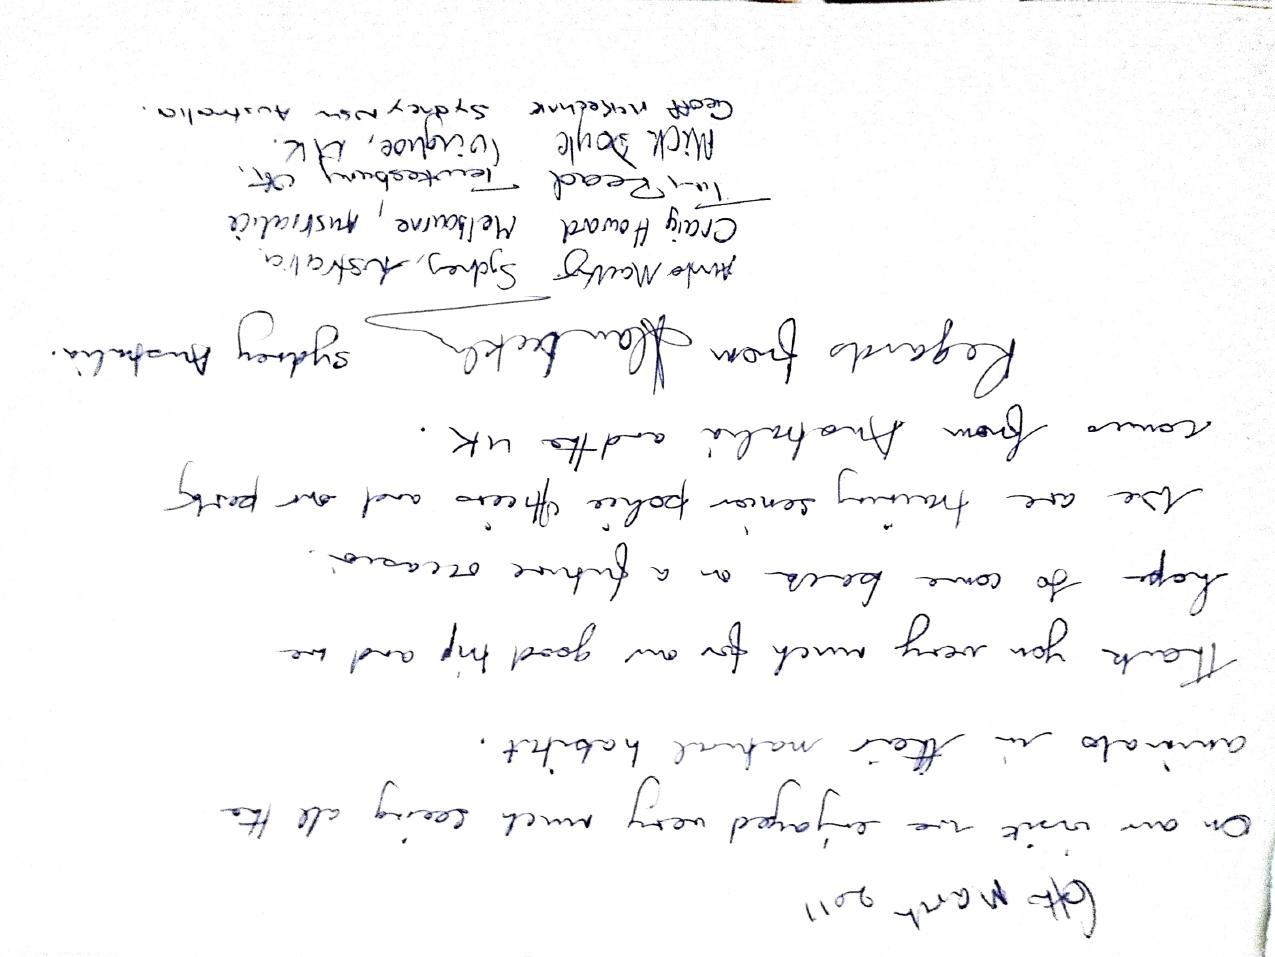 6th March 2011
On our visit we enjoyed very much seeing all the
animals in their natural habitit.
Thank you very much for our good trip and we
hope to come back on a future occasion.
We are training senior police officers and our party
comes from Australia and the UK.
Regards from Alan Sydney Australia.
Sydney, Australia
Craig Howard Melbourne, Australia
Read Tewkesbury UK.
Mick Doyle Ivinghoe, UK.
Geoff McKechnie Sydney NSW Australia.